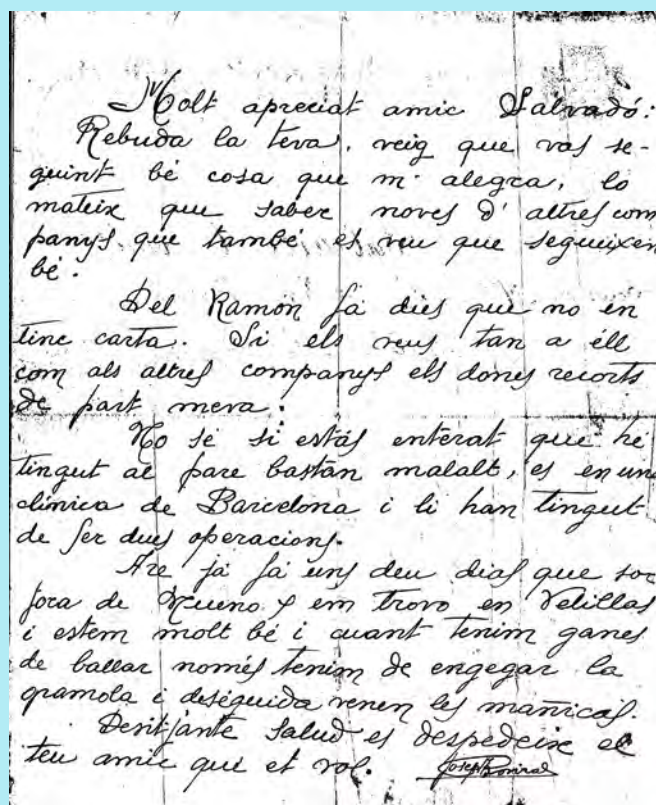 Molt apreciat amic Salvadó:
Rebuda la teva, veig que vas se-
guint bé cosa que m' alegra, lo
mateix que saber noves d' altres com
panys que també es veu que segueixen
bé.
Del Ramon fá dies que no en
tinc carta. Si els veus tan a éll
com als altres companys els dones recorts
de part meva.
No se si estás enterat que he
tingut al pare bastan malalt, es en una
clínica de Barcelona i li han tingut
de fer dues operacions.
Are ja fá uns deu dias que soc
fora de y em trovo en Velillas
i estem molt bé i cuant tenim ganes
de ballar només tenim de engegar la
gramola i deseguida venen les mañicas.
Desitjante Salud es despedeix el
teu amic que et vol. Josep